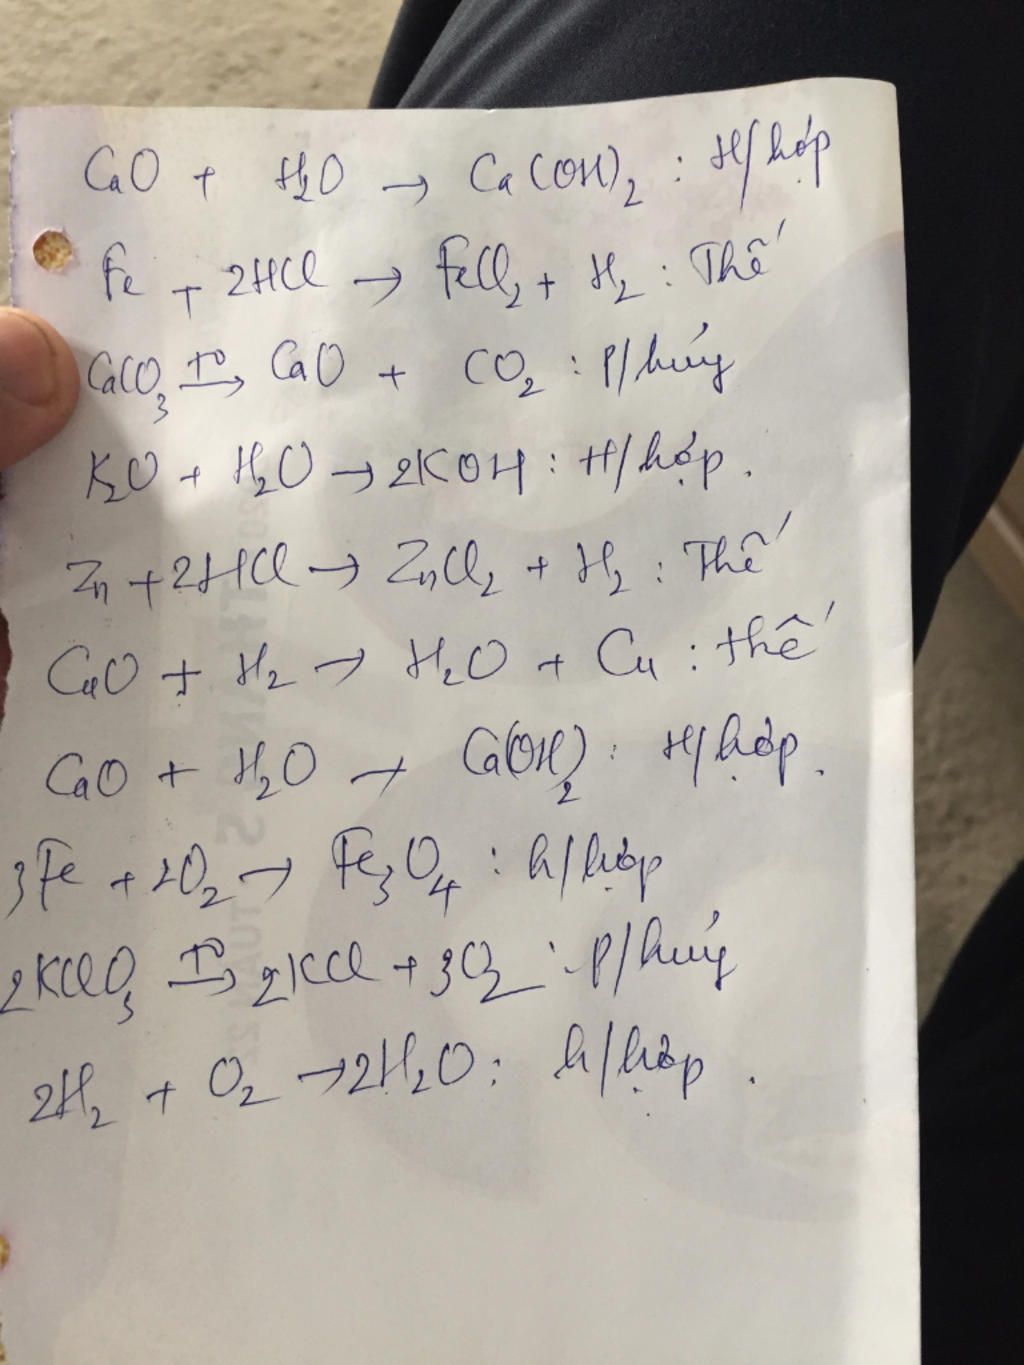 CaO + H₂O → Ca(OH)₂ : H/hợp
Fe + 2HCl → FeCl₂ + H₂ : Thế
CaCO₃ t° → CaO + CO₂ : P/hủy
K₂O + H₂O → 2KOH : H/hợp.
Zn + 2HCl → ZnCl₂ + H₂ : Thế
CuO + H₂ → H₂O + Cu : thế
CaO + H₂O → Ca(OH)₂ : H/hợp.
3Fe + 2O₂ → Fe₃O₄ : h/hợp
2KClO₃ t° → 2KCl + 3O₂ : p/hủy
2H₂ + O₂ → 2H₂O : h/hợp.